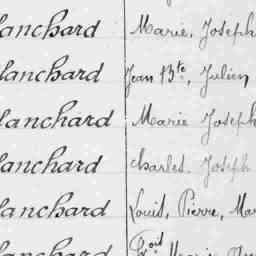 lanchard Marie, Joseph
lanchard Jean Bte, Julien
lanchard Marie Joseph
lanchard Charles, Joseph
lanchard Louis, Pierre, Mar
lanchard